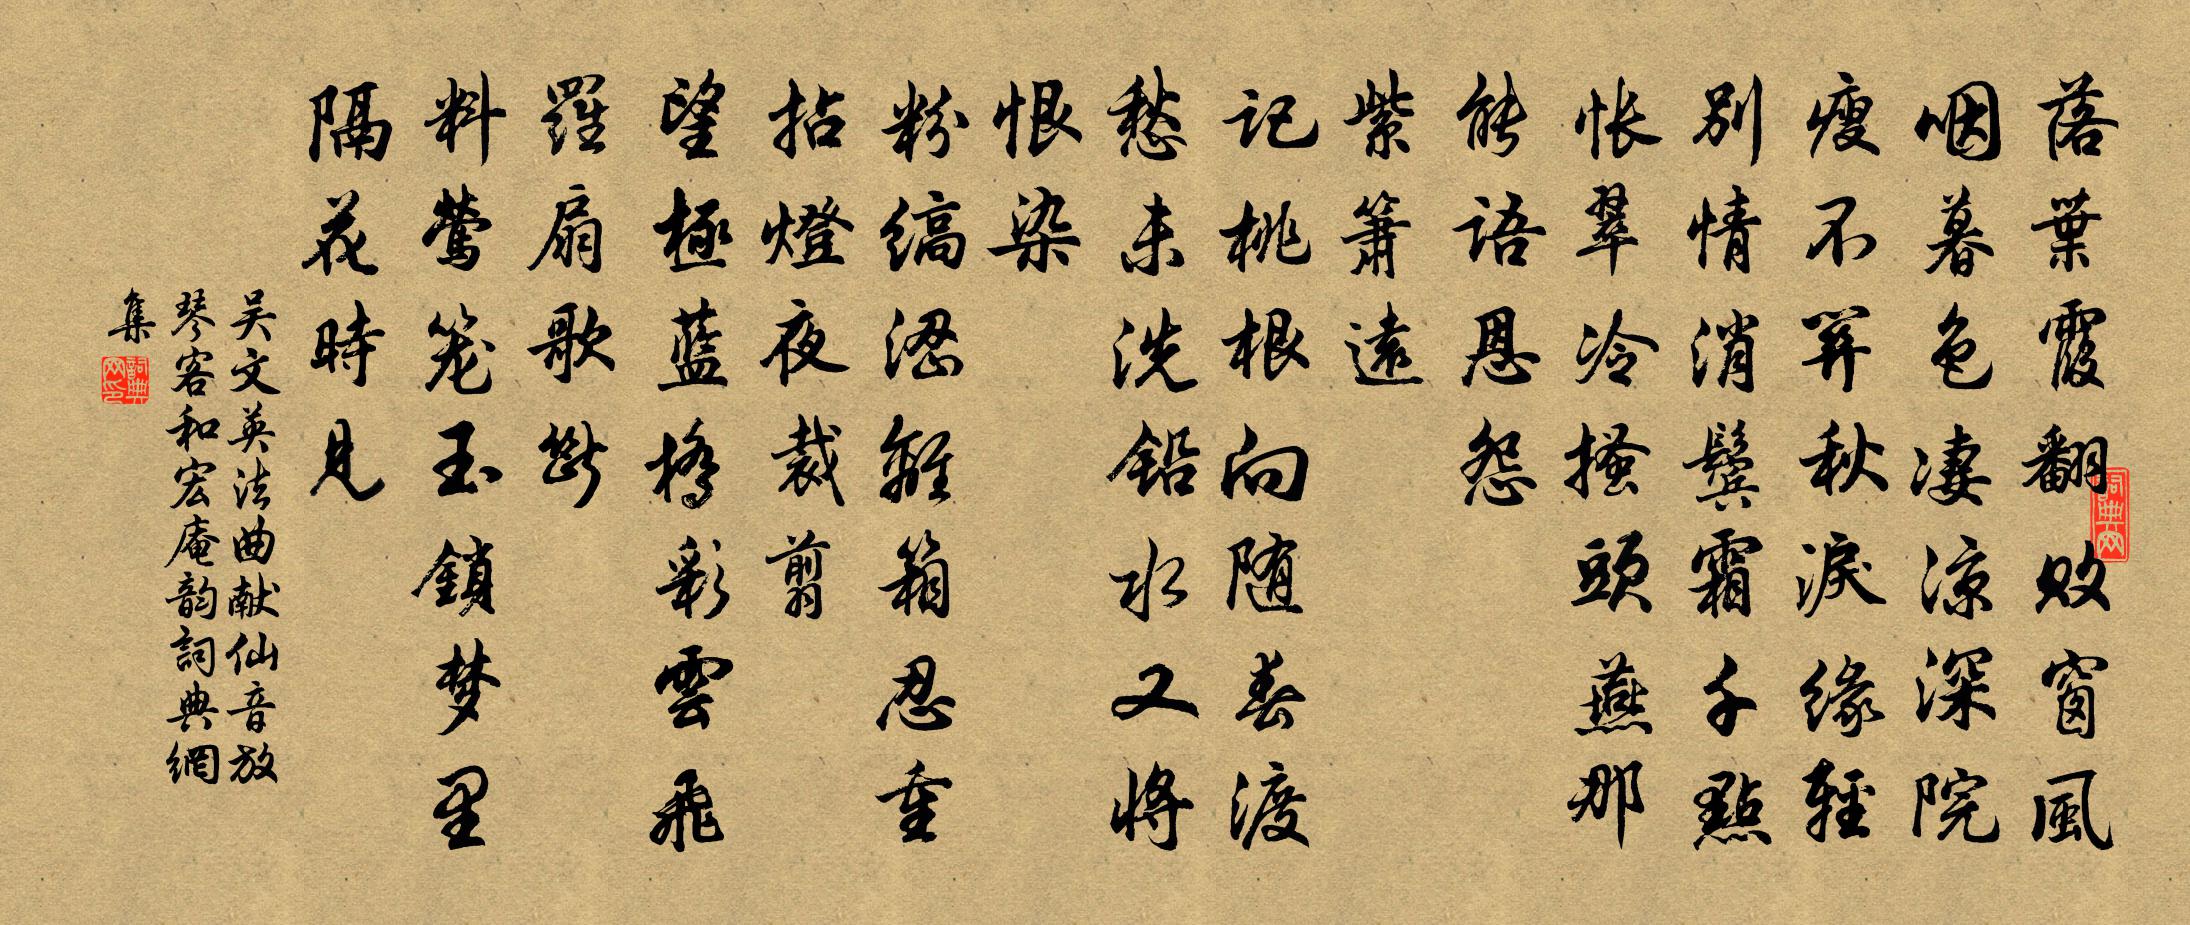 落葉霞翻敗窗風
咽暮色凄涼深院
瘦不關秋淚緣輕
別情消鬢霜千點
悵翠冷搔頭燕那
能語恩怨
紫簫遠
記桃根向随春渡
愁未洗鉛水又將
恨染
粉縞澀離箱忍重
拈燈夜裁剪
望極藍橋彩雲飛
羅扇歌斷
料鶯笼玉鎖梦里
隔花時見
吴文英法曲献仙音放
琴客和宏庵韵詞典網
集
詞典网
詞典网印